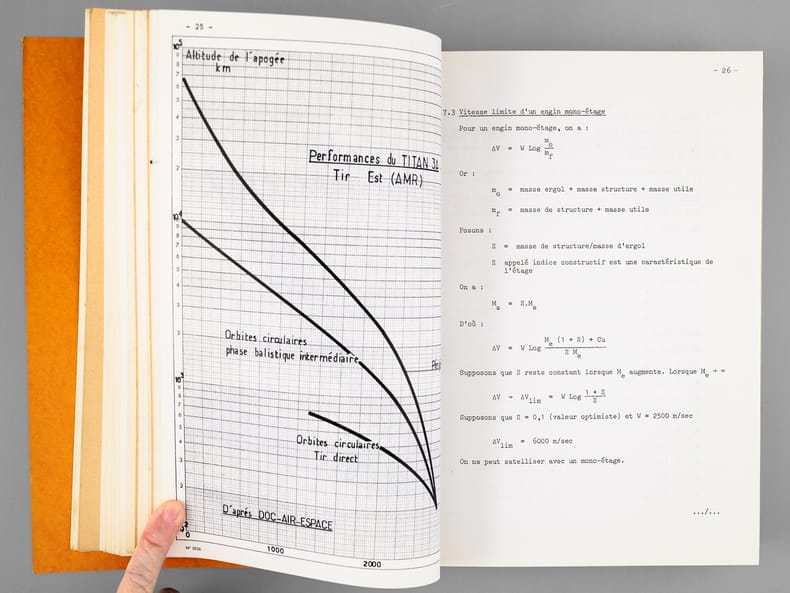 - 25 -
10⁵
Altitude de l'apogée
km
Performances du TITAN 3A
Tir Est (AMR)
10⁴
Orbites circulaires
phase balistique intermédiaire
10³
Orbites circulaires
Tir direct
D'après DOC-AIR-ESPACE
0
1000
2000
- 26 -
7.3 Vitesse limite d'un engin mono-étage
Pour un engin mono-étage, on a :
ΔV = W Log m_o / m_f
Or :
m_o = masse ergol + masse structure + masse utile
m_f = masse de structure + masse utile
Posons :
Π = masse de structure/masse d'ergol
Π appelé indice constructif est une caractéristique de
l'étage
On a :
M_s = Π.M_e
D'où :
ΔV = W Log M_e (1 + Π) + Cu / Π M_e
Supposons que Π reste constant lorsque M_e augmente. Lorsque M_e → ∞
ΔV → ΔV_lim = W Log 1 + Π / Π
Supposons que Π = 0,1 (valeur optimiste) et W = 2500 m/sec
ΔV_lim = 6000 m/sec
On ne peut satelliser avec un mono-étage.
.../...